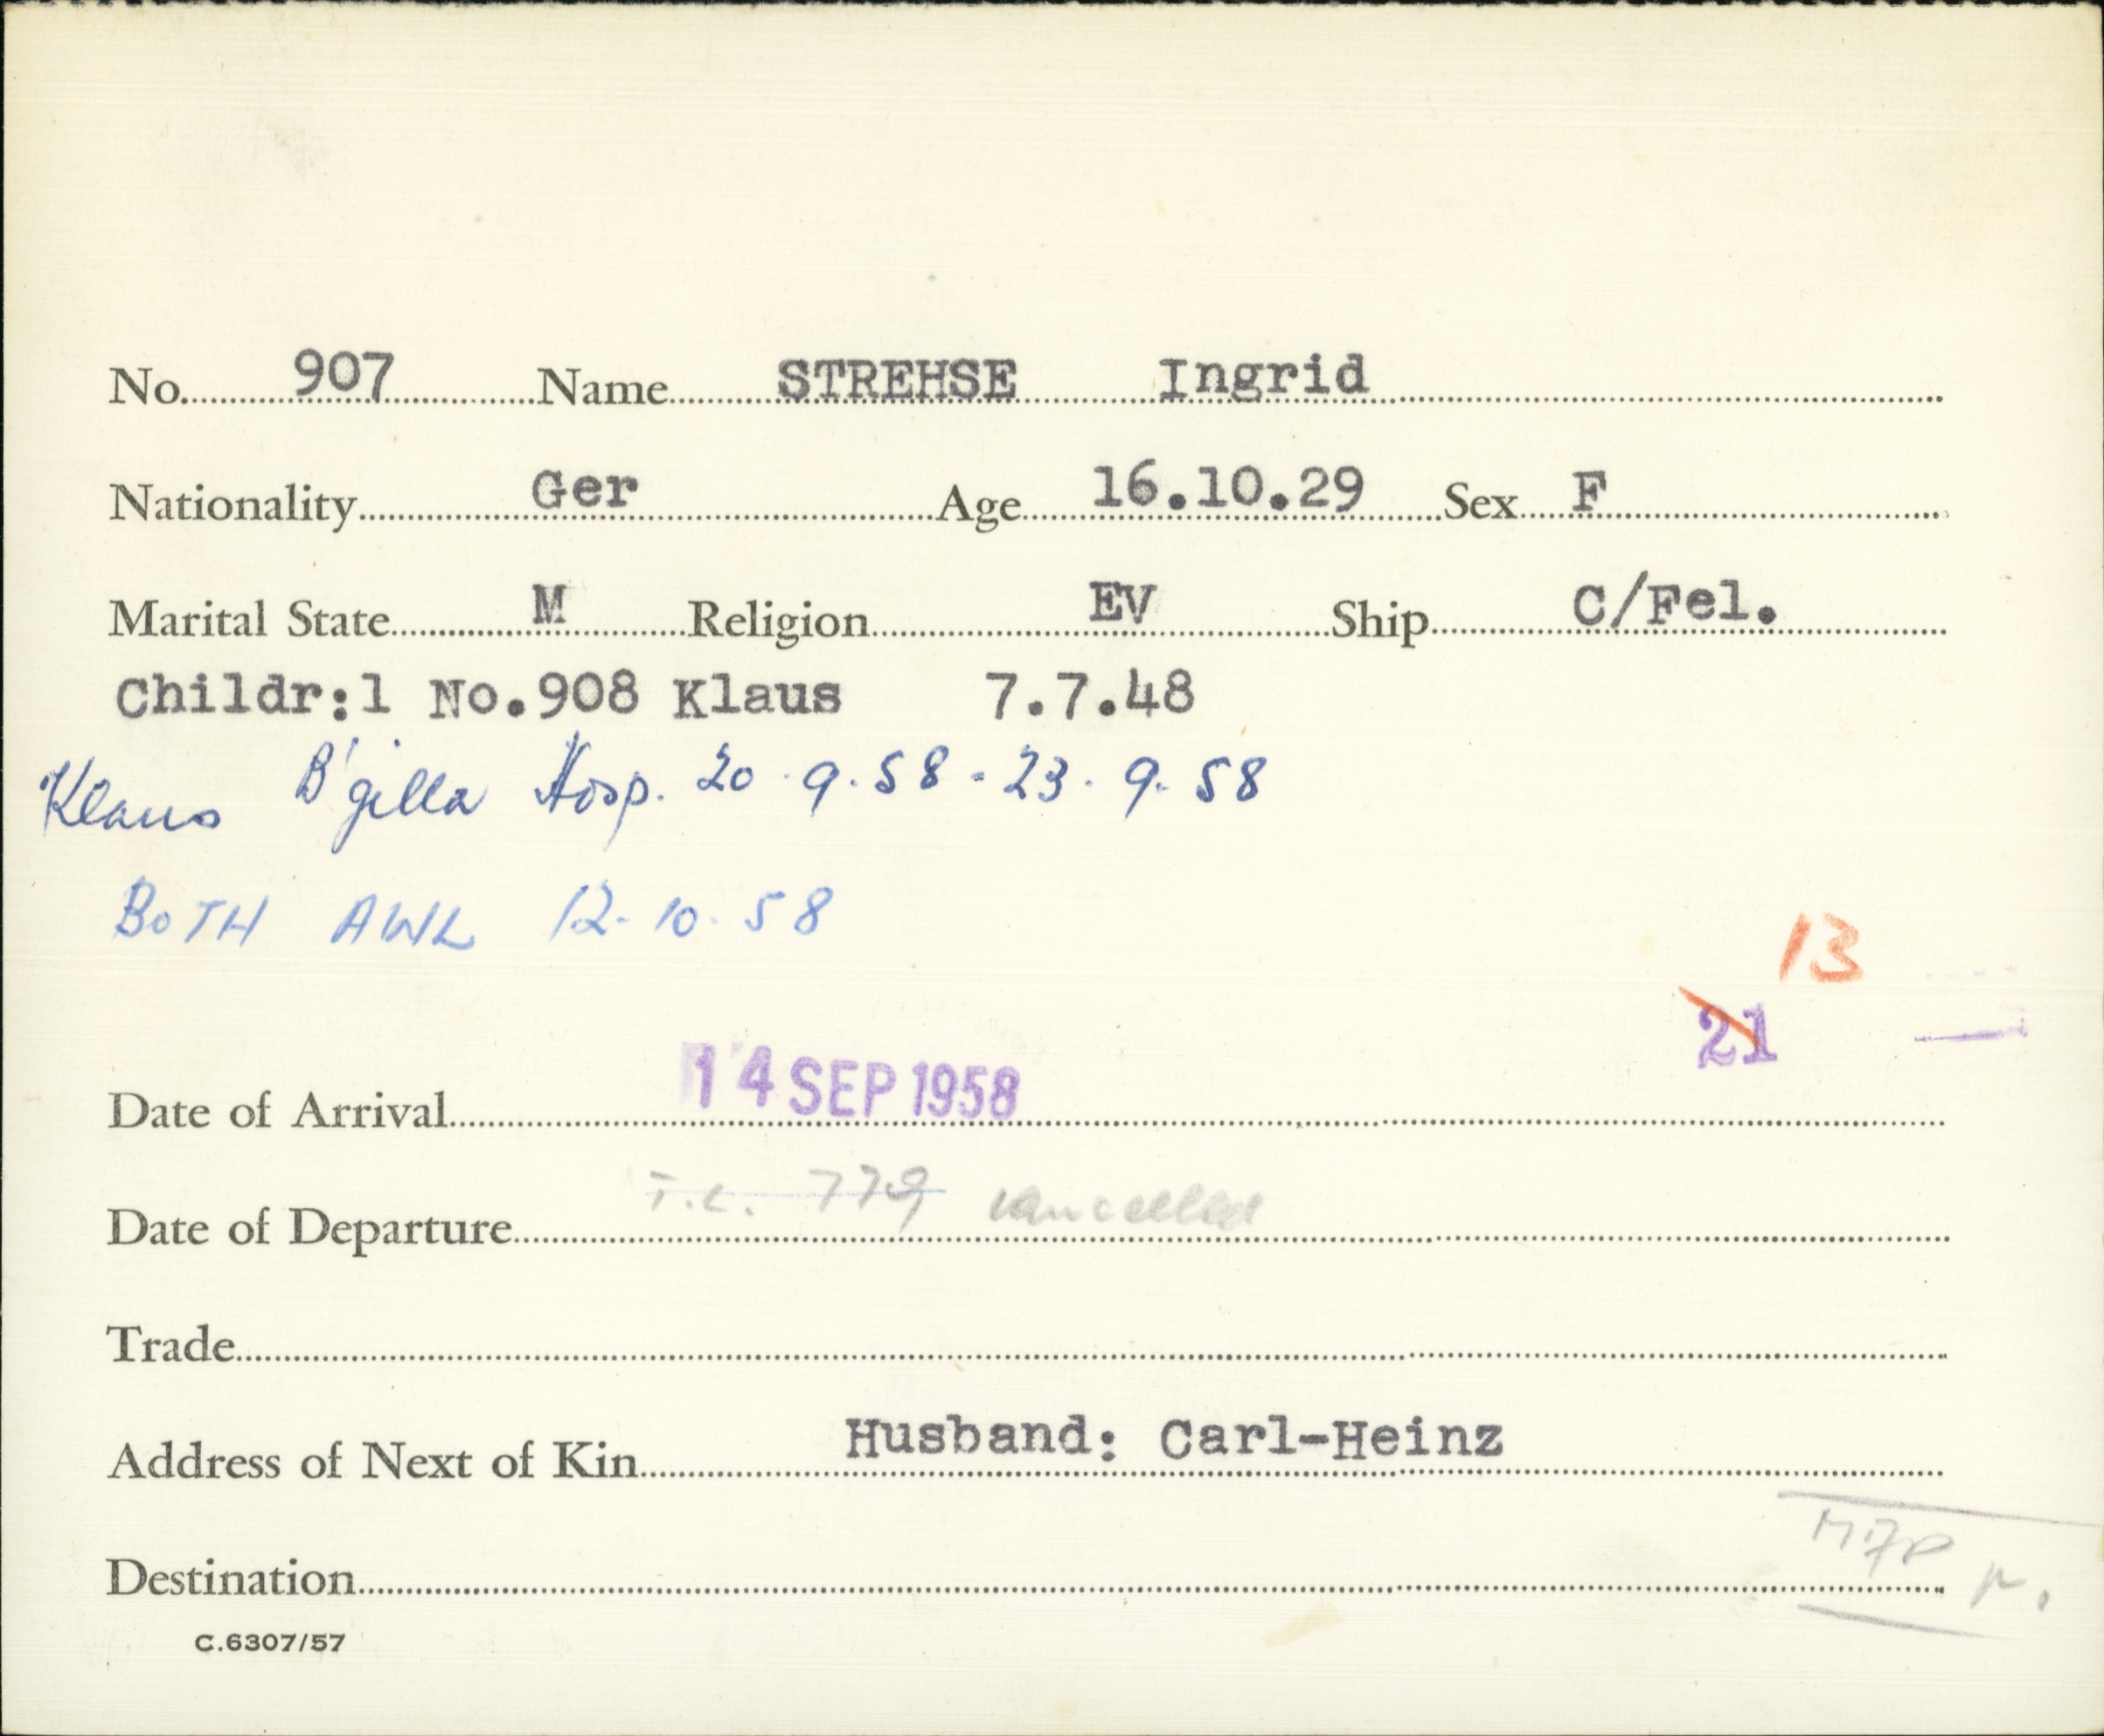 No. 907 Name STREHSE Ingrid
Nationality Ger Age 16.10.29 Sex F
Marital State M Religion EV Ship C/Fel.
Childr:1 No.908 Klaus 7.7.48
Klaus B'gilla Hosp. 20.9.58 - 23.9.58
BOTH AWL 12.10.58
13
21
Date of Arrival 14 SEP 1958
Date of Departure T.C. 779 cancelled
Trade
Address of Next of Kin Husband: Carl-Heinz
Destination
C.6307/57